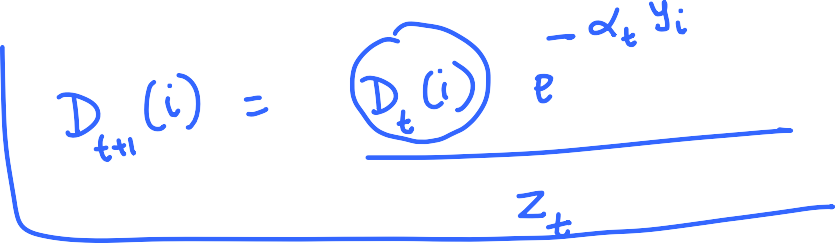 D_{t+1}(i) = \frac{D_t(i) e^{-\alpha_t y_i}}{Z_t}